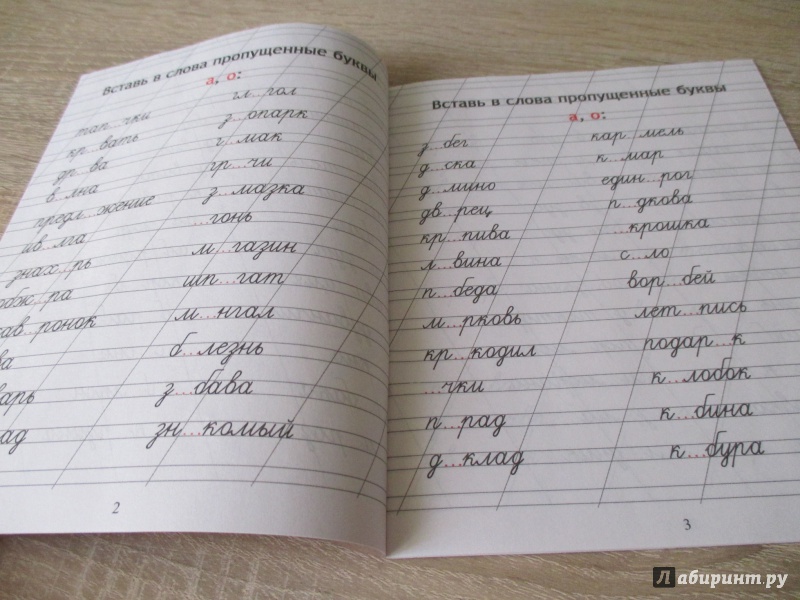 Вставь в слова пропущенные буквы
а, о:
тап...чки
кр...вать
др...ва
в...лна
предл...жение
ив...лга
знах...рь
обж...ра
ав...ронок
ва
варь
ад
гл...гол
з...опарк
г...мак
гр...чи
з...мазка
...гонь
м...газин
шп...гат
м...нгал
б...лезнь
з...бава
зн...комый
2
Вставь в слова пропущенные буквы
а, о:
з...бег
д...ска
д...мино
дв...рец
кр...пива
л...вина
п...беда
м...рковь
кр...кодил
...чки
п...рад
д...клад
кар...мель
к...мар
един...рог
п...дкова
...крошка
с...ло
вор...бей
лет...пись
подар...к
к...лобок
к...бина
к...бура
3
Лабиринт.ру